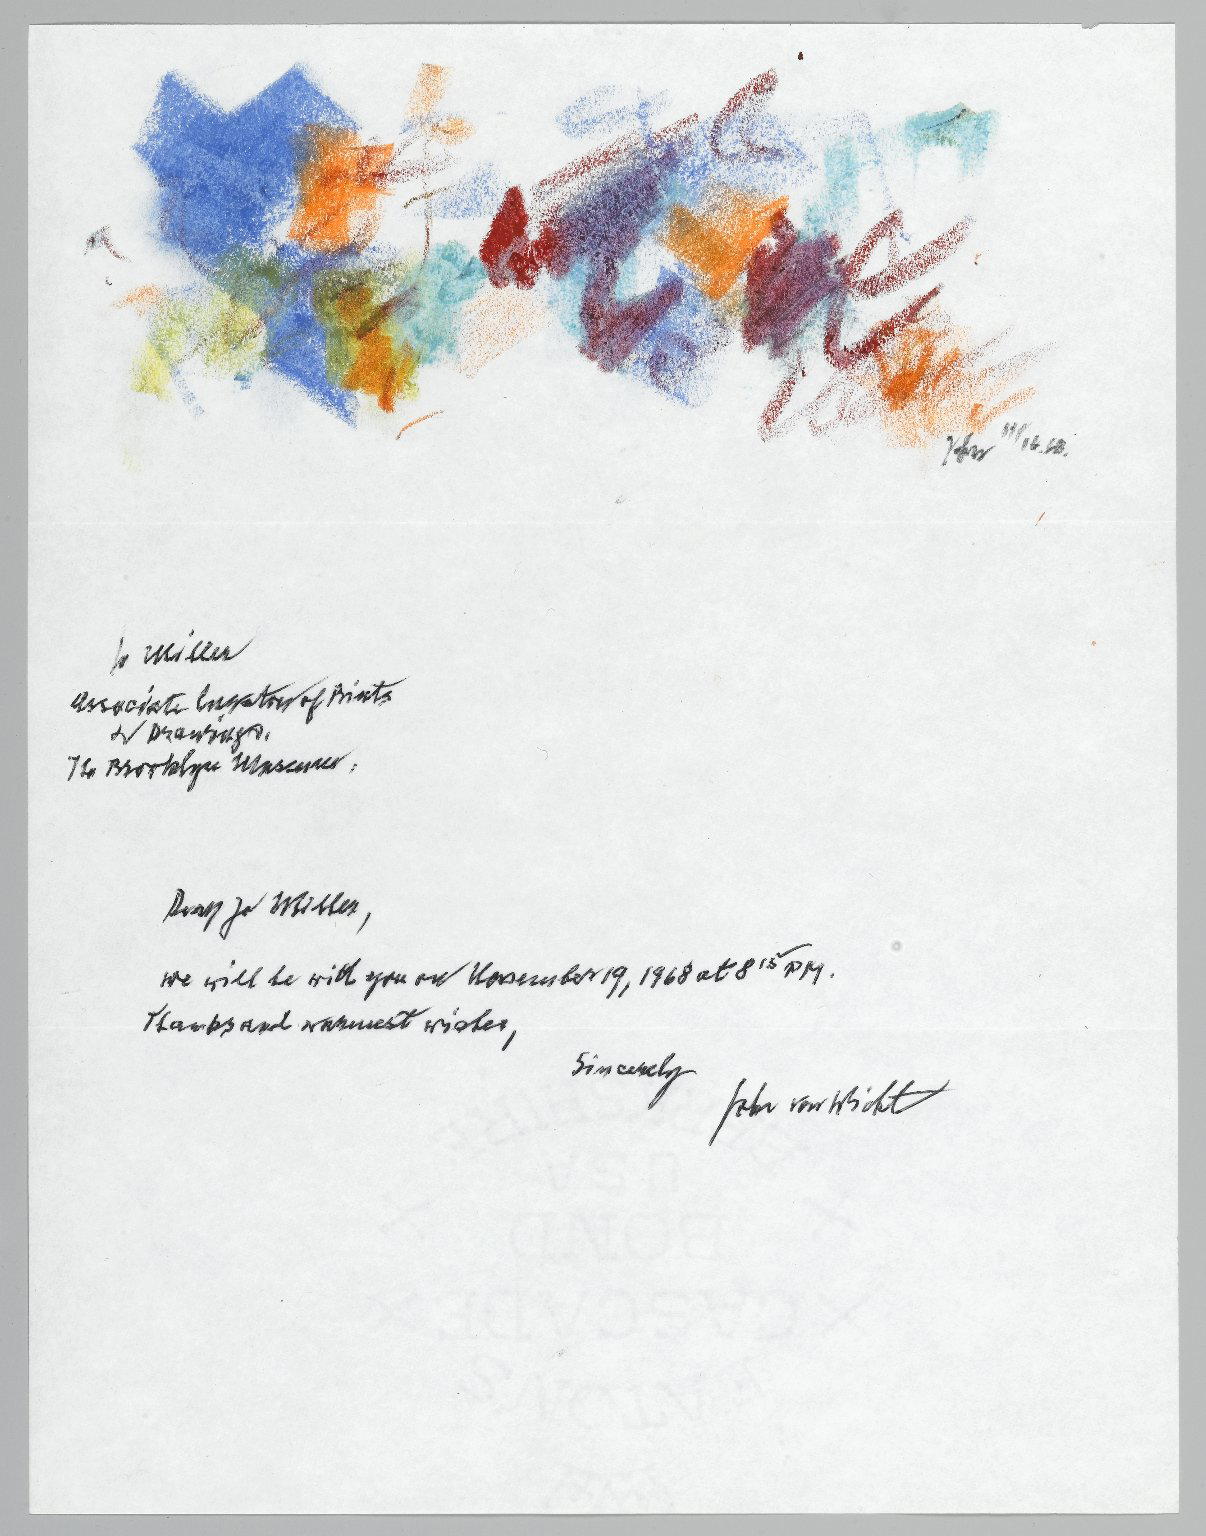 John 11/16.68.
Jo Miller
Associate Curator of Prints
& Drawings.
The Brooklyn Museum.
Dear Jo Miller,
we will be with you on November 19, 1968 at 8 15 PM.
Thanks and warmest wishes,
Sincerely
John von Wicht
BOND